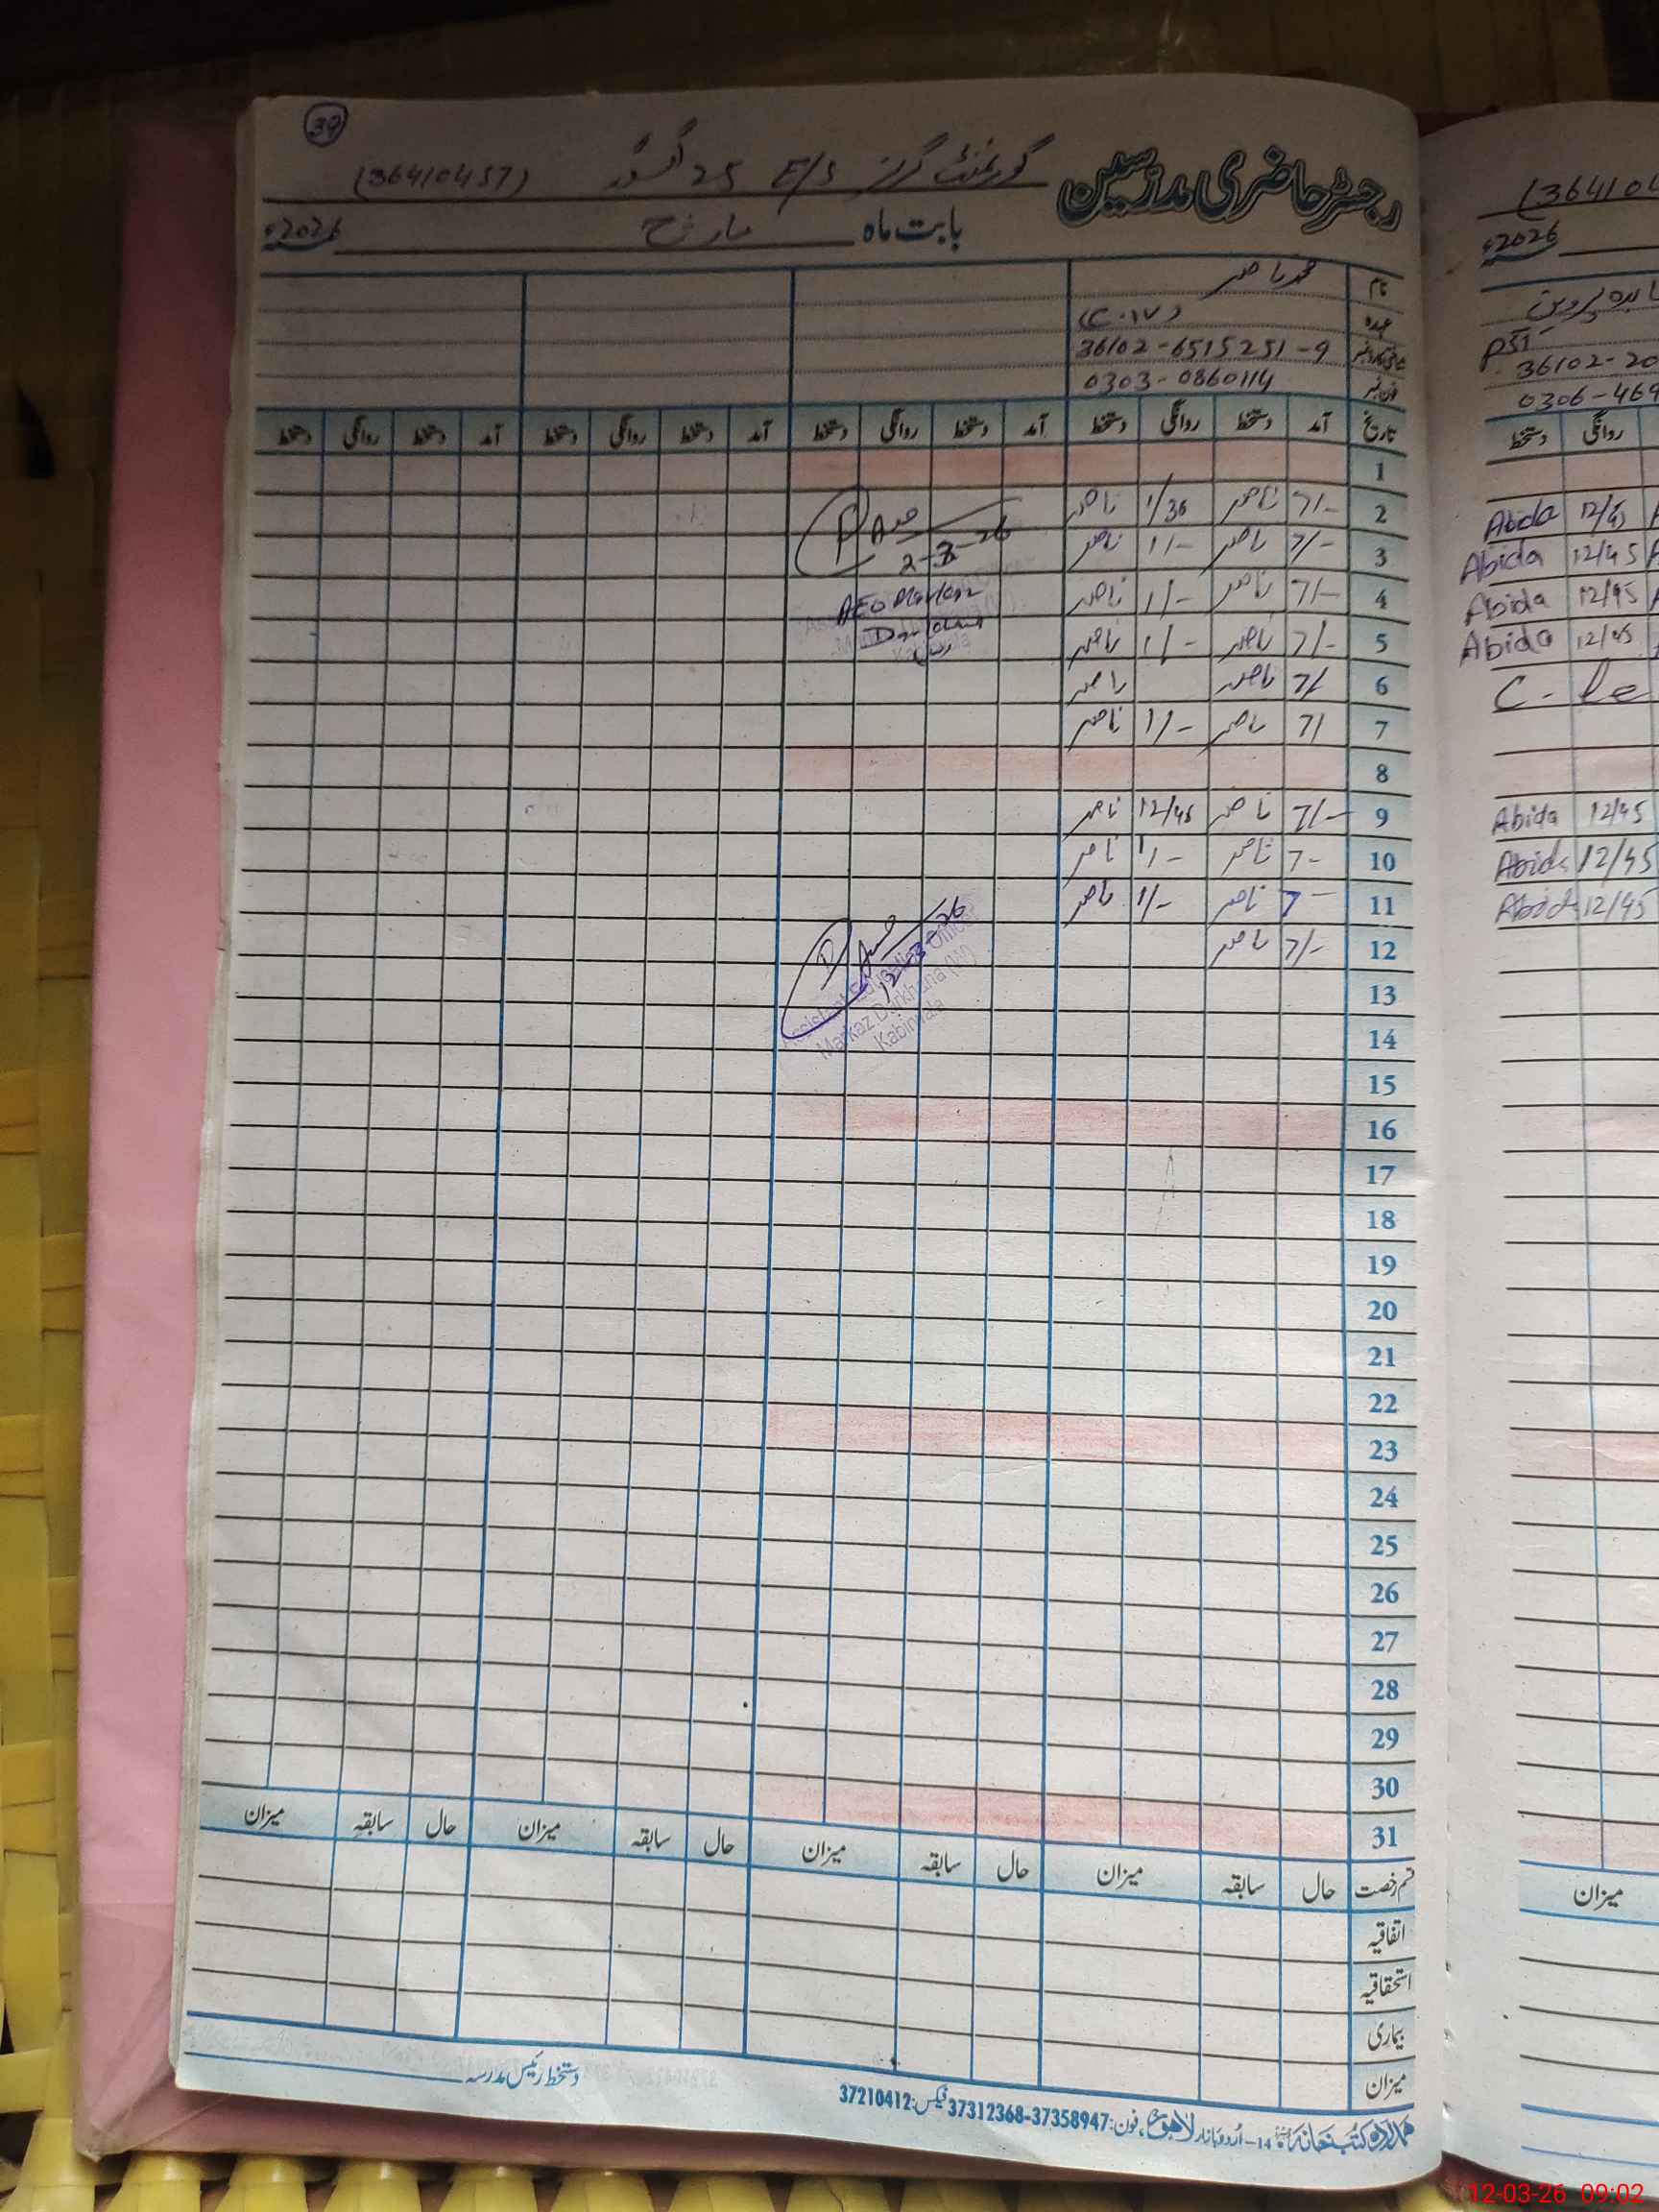 39
رجسٹر حاضری مدرسین گورنمنٹ گرلز E/S 25 (36410457)
بابت ماہ مارچ 2026ء
نام محمد ناصر
عہدہ (C.IV)
شناختی کارڈ نمبر 36102-6515251-9
فون نمبر 0303-0860114
تاریخ آمد دستخط روانگی دستخط آمد دستخط روانگی دستخط آمد دستخط روانگی دستخط آمد دستخط روانگی دستخط
1
2 7/- ناصر 1/30 ناصر
3 7/- ناصر 1/- ناصر
2-3-26
4 7/- ناصر 1/- ناصر
AEO Markaz
5 7/- ناصر 1/- ناصر
6 7/ ناصر ناصر
7 7/ ناصر 1/- ناصر
8
9 7/- ناصر 12/45 ناصر
10 7- ناصر 1/- ناصر
11 7- ناصر 1/- ناصر
12 7/- ناصر
12-3-26
Assistant Education Officer
Markaz Darkhana (W)
Kabirwala
13
14
15
16
17
18
19
20
21
22
23
24
25
26
27
28
29
30
31
قسم رخصت حال سابقہ میزان حال سابقہ میزان حال سابقہ میزان حال سابقہ میزان
اتفاقیہ
استحقاقیہ
بیماری
میزان
دستخط رئیس مدرسہ
14-اردو بازار لاہور، فون: 37358947-37312368 فیکس: 37210412
(36410
2026ء
PST
36102-20
0306-469
روانگی دستخط
12/45 Abida
12/45 Abida
12/45 Abida
12/45 Abida
C-le
12/45 Abida
12/45 Abida
12/45 Abida
میزان
12-03-26 09:02